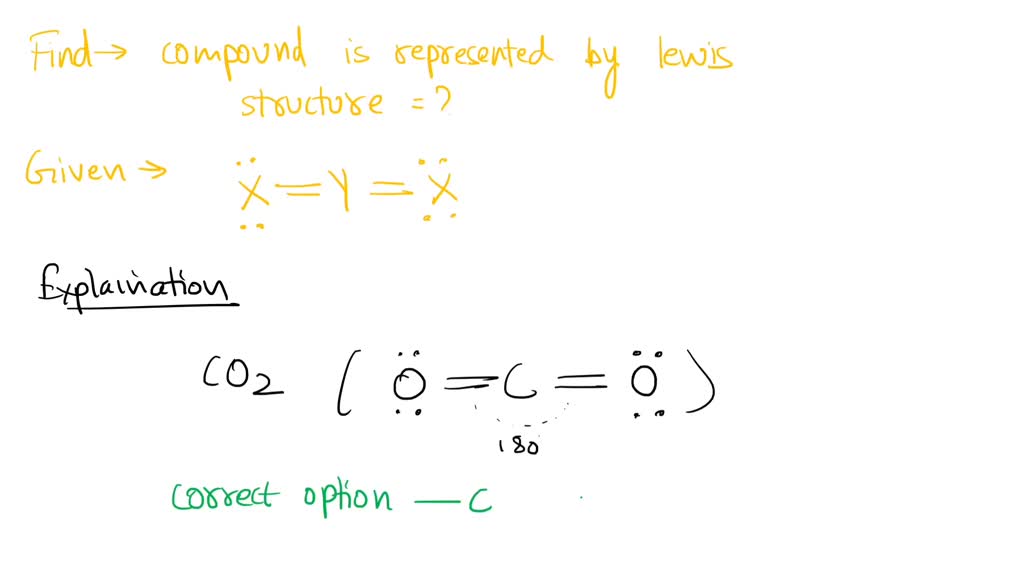 Find → compound is represented by lewis
structure = ?
Given → X = Y = X
Explaination
CO2 ( O = C = O )
180
correct option — C